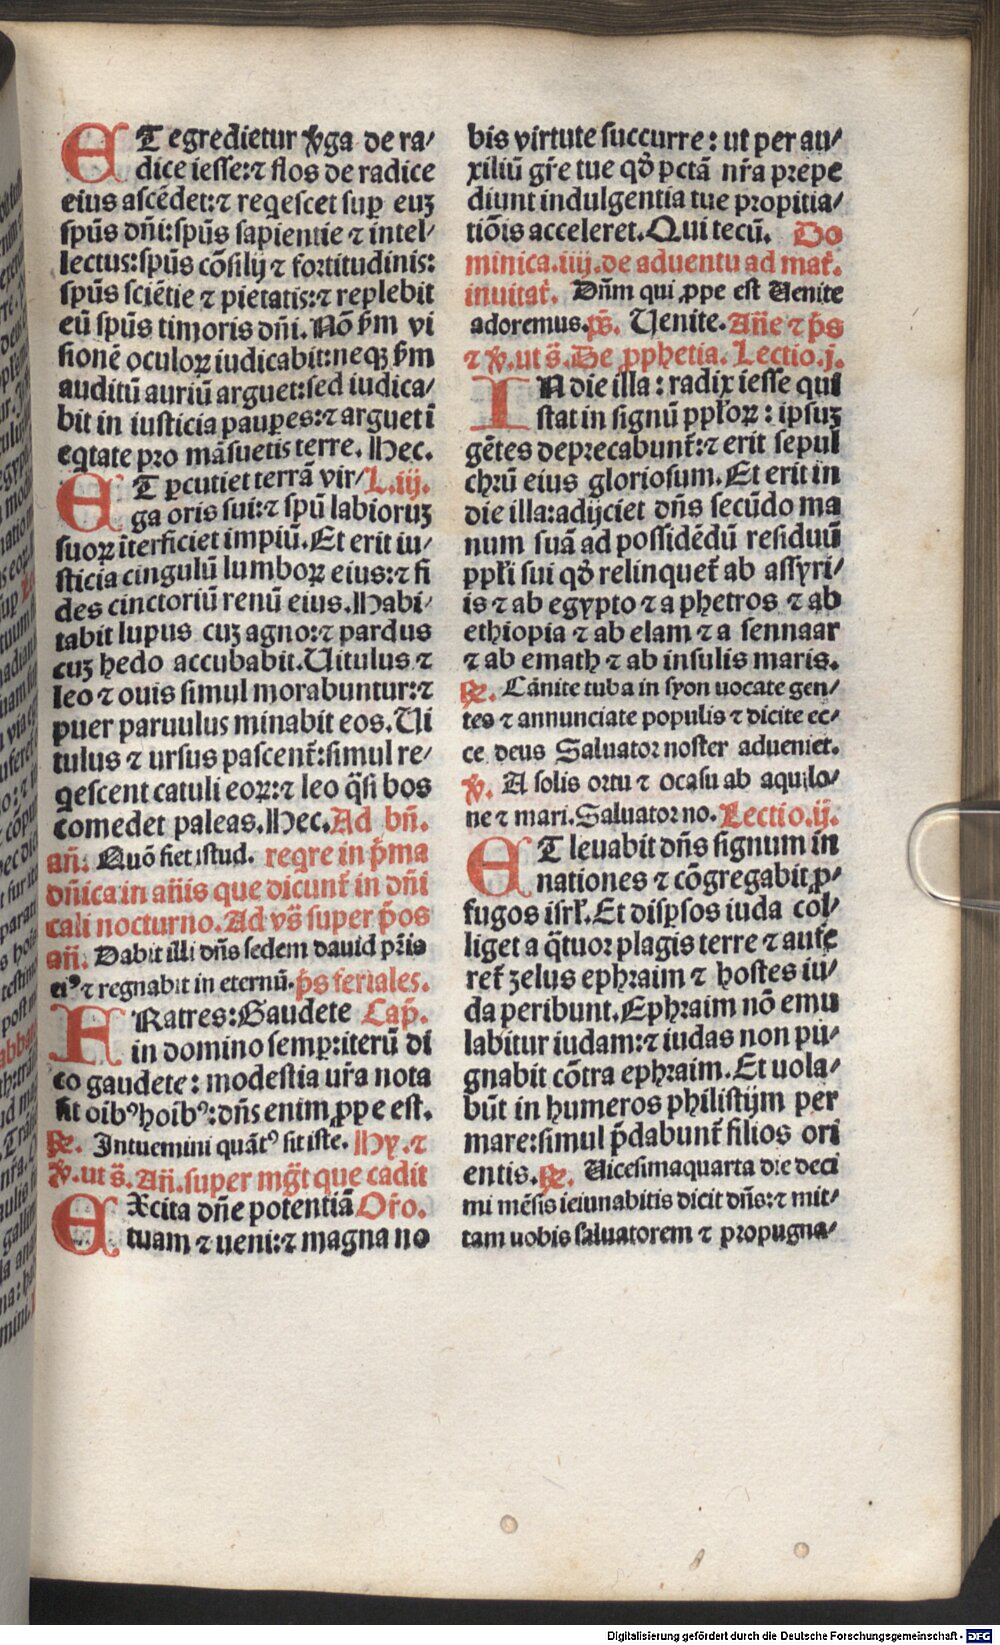 ET egredietur v̾ga de ra⸗
dice iesse:⁊ flos de radice
eius ascēdet:⁊ reqescet suꝑ euꝫ
spūs dn̄i:spūs sapientie ⁊ intel⸗
lectus:spūs cōsilij ⁊ fortitudinis:
spūs sciētie ⁊ pietatis:⁊ replebit
eū spūs timoris dn̄i.Nō s̄m vi
sionē oculoꝝ iudicabit:neqꝫ s̄m
auditū auriū arguet:sed iudica⸗
bit in iusticia pauꝑes:⁊ arguet ī
eqtate pro māsuetis terre. Hec.
ET ꝑcutiet terrā vir⸗ L.iij.
ga oris sui:⁊ spū labioruꝫ
suoꝝ īterficiet impiū.Et erit iu⸗
sticia cingulū lumboꝝ eius:⁊ fi
des cinctoriū renū eius.Habi⸗
tabit lupus cuꝫ agno:⁊ pardus
cuꝫ hedo accubabit.Uitulus ⁊
leo ⁊ ouis simul morabuntur:⁊
puer paruulus minabit eos.Ui
tulus ⁊ ursus pascent᷑:simul re⸗
qescent catuli eoꝝ:⁊ leo q̄si bos
comedet paleas.Hec.Ad bn̄.
an̄. Quō fiet istud. reqre in p̄ma
dn̄ica in an̄is que dicunt᷑ in dn̄i
cali nocturno.Ad vs̄ super p̄os
an̄. Dabit illi dn̄s sedem dauid pr̄is
eiꝰ ⁊ regnabit in eternū.p̄s feriales.
FRatres:Gaudete Cap̄.
in domino semꝑ:iterū di
co gaudete: modestia ur̄a nota
sit oībꝰ hoībꝰ:dn̄s enim ꝓpe est.
℟. Intuemini quātꝰ sit iste. Hy.⁊
℣.ut s̄.An̄.super mḡt que cadit
EXcita dn̄e potentiā Or̄o.
tuam ⁊ ueni:⁊ magna no
bis virtute succurre: ut per au⸗
xiliū gr̄e tue qd̄ pctā nr̄a prepe
diunt indulgentia tue propitia⸗
tiōis acceleret.Qui tecū. Do
minica.iiij.de aduentu ad mat᷑.
inuitat᷑. Dn̄m qui ꝓpe est Uenite
adoremus.ps̄. Uenite.An̄e ⁊ p̄s
⁊ ℣.ut s̄.De ꝓphetia. Lectio.j.
IN die illa: radix iesse qui
stat in signū ppl̄oꝝ: ipsuꝫ
gētes deprecabunt᷑:⁊ erit sepul
chrū eius gloriosum.Et erit in
die illa:adijciet dn̄s secūdo ma
num suā ad possidēdū residuū
ppl̄i sui qd̄ relinquet᷑ ab assyri⸗
is ⁊ ab egypto ⁊ a phetros ⁊ ab
ethiopia ⁊ ab elam ⁊ a sennaar
⁊ ab emath ⁊ ab insulis maris.
℟. Cānite tuba in syon uocate gen⸗
tes ⁊ annunciate populis ⁊ dicite ec⸗
ce deus Saluator noster adueniet.
℣. A solis ortu ⁊ ocasu ab aquilo⸗
ne ⁊ mari.Saluator no. Lectio.ij.
ET leuabit dn̄s signum in
nationes ⁊ cōgregabit ꝓ⸗
fugos isrl̄.Et disꝑsos iuda col⸗
liget a q̄tuor plagis terre ⁊ aufe
ret᷑ zelus ephraim ⁊ hostes iu⸗
da peribunt.Ephraim nō emu
labitur iudam:⁊ iudas non pu⸗
gnabit cōtra ephraim.Et uola⸗
būt in humeros philistijm per
mare:simul p̄dabunt᷑ filios ori
entis.℟. Uicesimaquarta die deci
mi mēsis ieiunabitis dicit dn̄s:⁊ mit⸗
tam uobis saluatorem ⁊ propugna⸗
Digitalisierung gefördert durch die Deutsche Forschungsgemeinschaft - DFG